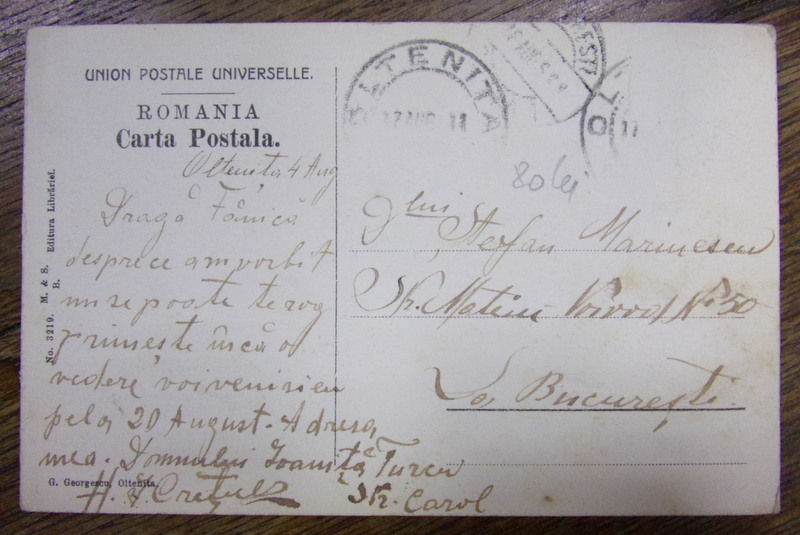 UNION POSTALE UNIVERSELLE.
ROMANIA
Carta Postala.
Oltenița 4 Aug
Dragă Fănică
desprece am vorbit
nu se poate te rog
primește încă o
vedere, voi veni si eu
pela 20 August. Adresa
mea. Domnului Ioaniță Turcu
Str. Carol
G. Georgescu, Oltenița.
No. 3219. M. & S. Editura Librăriei.
B.
OLTENITA
17 AUG 11
80 lei
Dlui
Stefan Marinescu
Str. Mateiu Voivod No 50
La București.